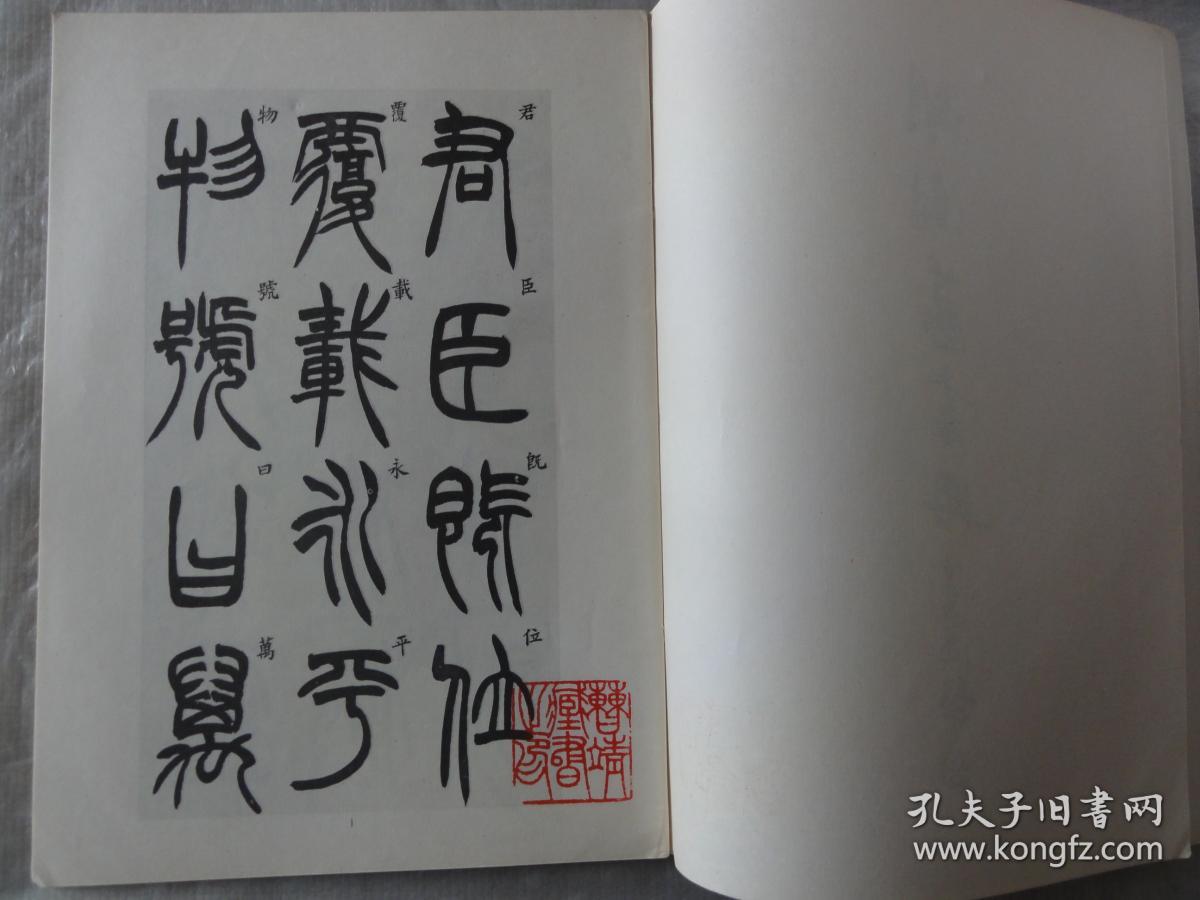 君臣既位
覆載永平
物號曰萬
1
孔夫子旧书网
www.kongfz.com